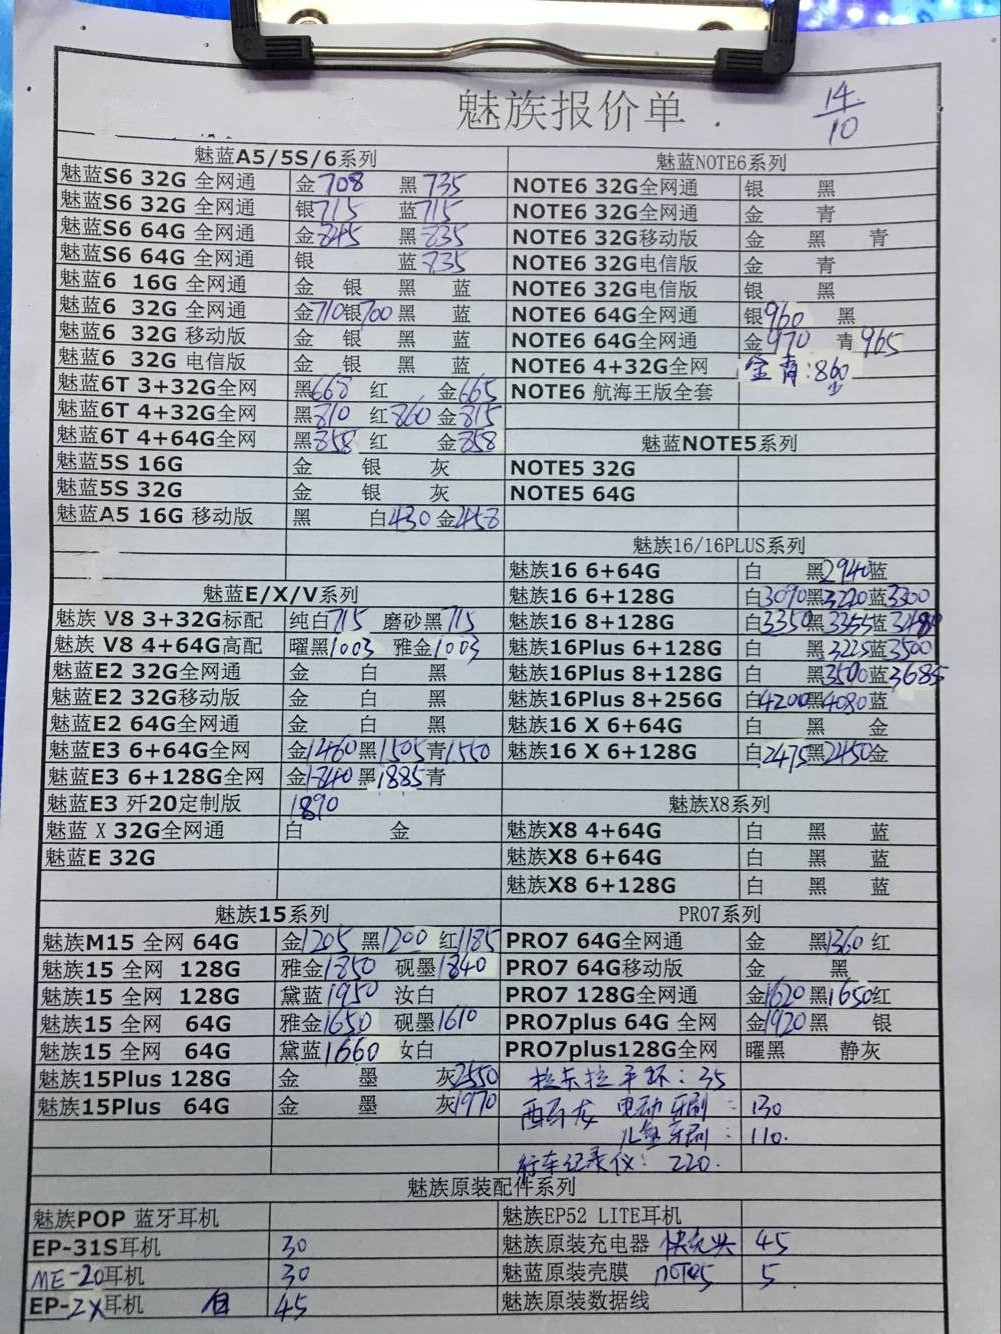 魅族报价单
14/10
魅蓝A5/5S/6系列
魅蓝S6 32G 全网通 金708 黑735
魅蓝S6 32G 全网通 银715 蓝715
魅蓝S6 64G 全网通 金845 黑835
魅蓝S6 64G 全网通 银 蓝835
魅蓝6 16G 全网通 金 银 黑 蓝
魅蓝6 32G 全网通 金710银700黑 蓝
魅蓝6 32G 移动版 金 银 黑 蓝
魅蓝6 32G 电信版 金 银 黑 蓝
魅蓝6T 3+32G全网 黑668 红 金665
魅蓝6T 4+32G全网 黑810 红860 金815
魅蓝6T 4+64G全网 黑858 红 金858
魅蓝5S 16G 金 银 灰
魅蓝5S 32G 金 银 灰
魅蓝A5 16G 移动版 黑 白430 金458
魅蓝E/X/V系列
魅族 V8 3+32G标配 纯白715 磨砂黑715
魅族 V8 4+64G高配 曜黑1003 雅金1003
魅蓝E2 32G全网通 金 白 黑
魅蓝E2 32G移动版 金 白 黑
魅蓝E2 64G全网通 金 白 黑
魅蓝E3 6+64G全网 金1460黑1505青1550
魅蓝E3 6+128G全网 金1840黑1885青
魅蓝E3 歼20定制版 1890
魅蓝 X 32G全网通 白 金
魅蓝E 32G
魅族15系列
魅族M15 全网 64G 金1205 黑1200 红1185
魅族15 全网 128G 雅金1850 砚墨1840
魅族15 全网 128G 黛蓝1950 汝白
魅族15 全网 64G 雅金1650 砚墨1610
魅族15 全网 64G 黛蓝1660 汝白
魅族15Plus 128G 金 墨 灰2550
魅族15Plus 64G 金 墨 灰1970
魅蓝NOTE6系列
NOTE6 32G全网通 银 黑
NOTE6 32G全网通 金 青
NOTE6 32G移动版 金 黑 青
NOTE6 32G电信版 金 青
NOTE6 32G电信版 银 黑
NOTE6 64G全网通 银960 黑
NOTE6 64G全网通 金970 青965
NOTE6 4+32G全网 金 青:860
NOTE6 航海王版全套
魅蓝NOTE5系列
NOTE5 32G
NOTE5 64G
魅族16/16PLUS系列
魅族16 6+64G 白 黑2940蓝
魅族16 6+128G 白3090黑3220蓝3300
魅族16 8+128G 白3350黑3355蓝3480
魅族16Plus 6+128G 白 黑3225蓝3500
魅族16Plus 8+128G 白 黑3590蓝3685
魅族16Plus 8+256G 白4200黑4080蓝
魅族16 X 6+64G 白 黑 金
魅族16 X 6+128G 白2475黑2450金
魅族X8系列
魅族X8 4+64G 白 黑 蓝
魅族X8 6+64G 白 黑 蓝
魅族X8 6+128G 白 黑 蓝
PRO7系列
PRO7 64G全网通 金 黑1360 红
PRO7 64G移动版 金 黑
PRO7 128G全网通 金1620 黑1650红
PRO7plus 64G 全网 金1920黑 银
PRO7plus128G全网 曜黑 静灰
拉卡拉手环：35
西马龙 电动牙刷：130
儿童牙刷：110.
行车记录仪：220.
魅族原装配件系列
魅族POP 蓝牙耳机 魅族EP52 LITE耳机
EP-31S耳机 30 魅族原装充电器 45
ME-20耳机 30 魅蓝原装壳膜 noTe5 5
EP-2X耳机 白 45 魅族原装数据线